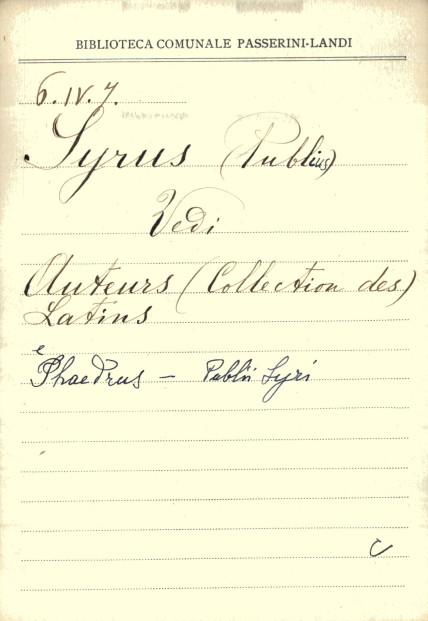 BIBLIOTECA COMUNALE PASSERINI-LANDI
6.IV.7.
Syrus (Publius)
Vedi
Auteurs (Collection des)
Latins
e
Phaedrus — Publii Syri